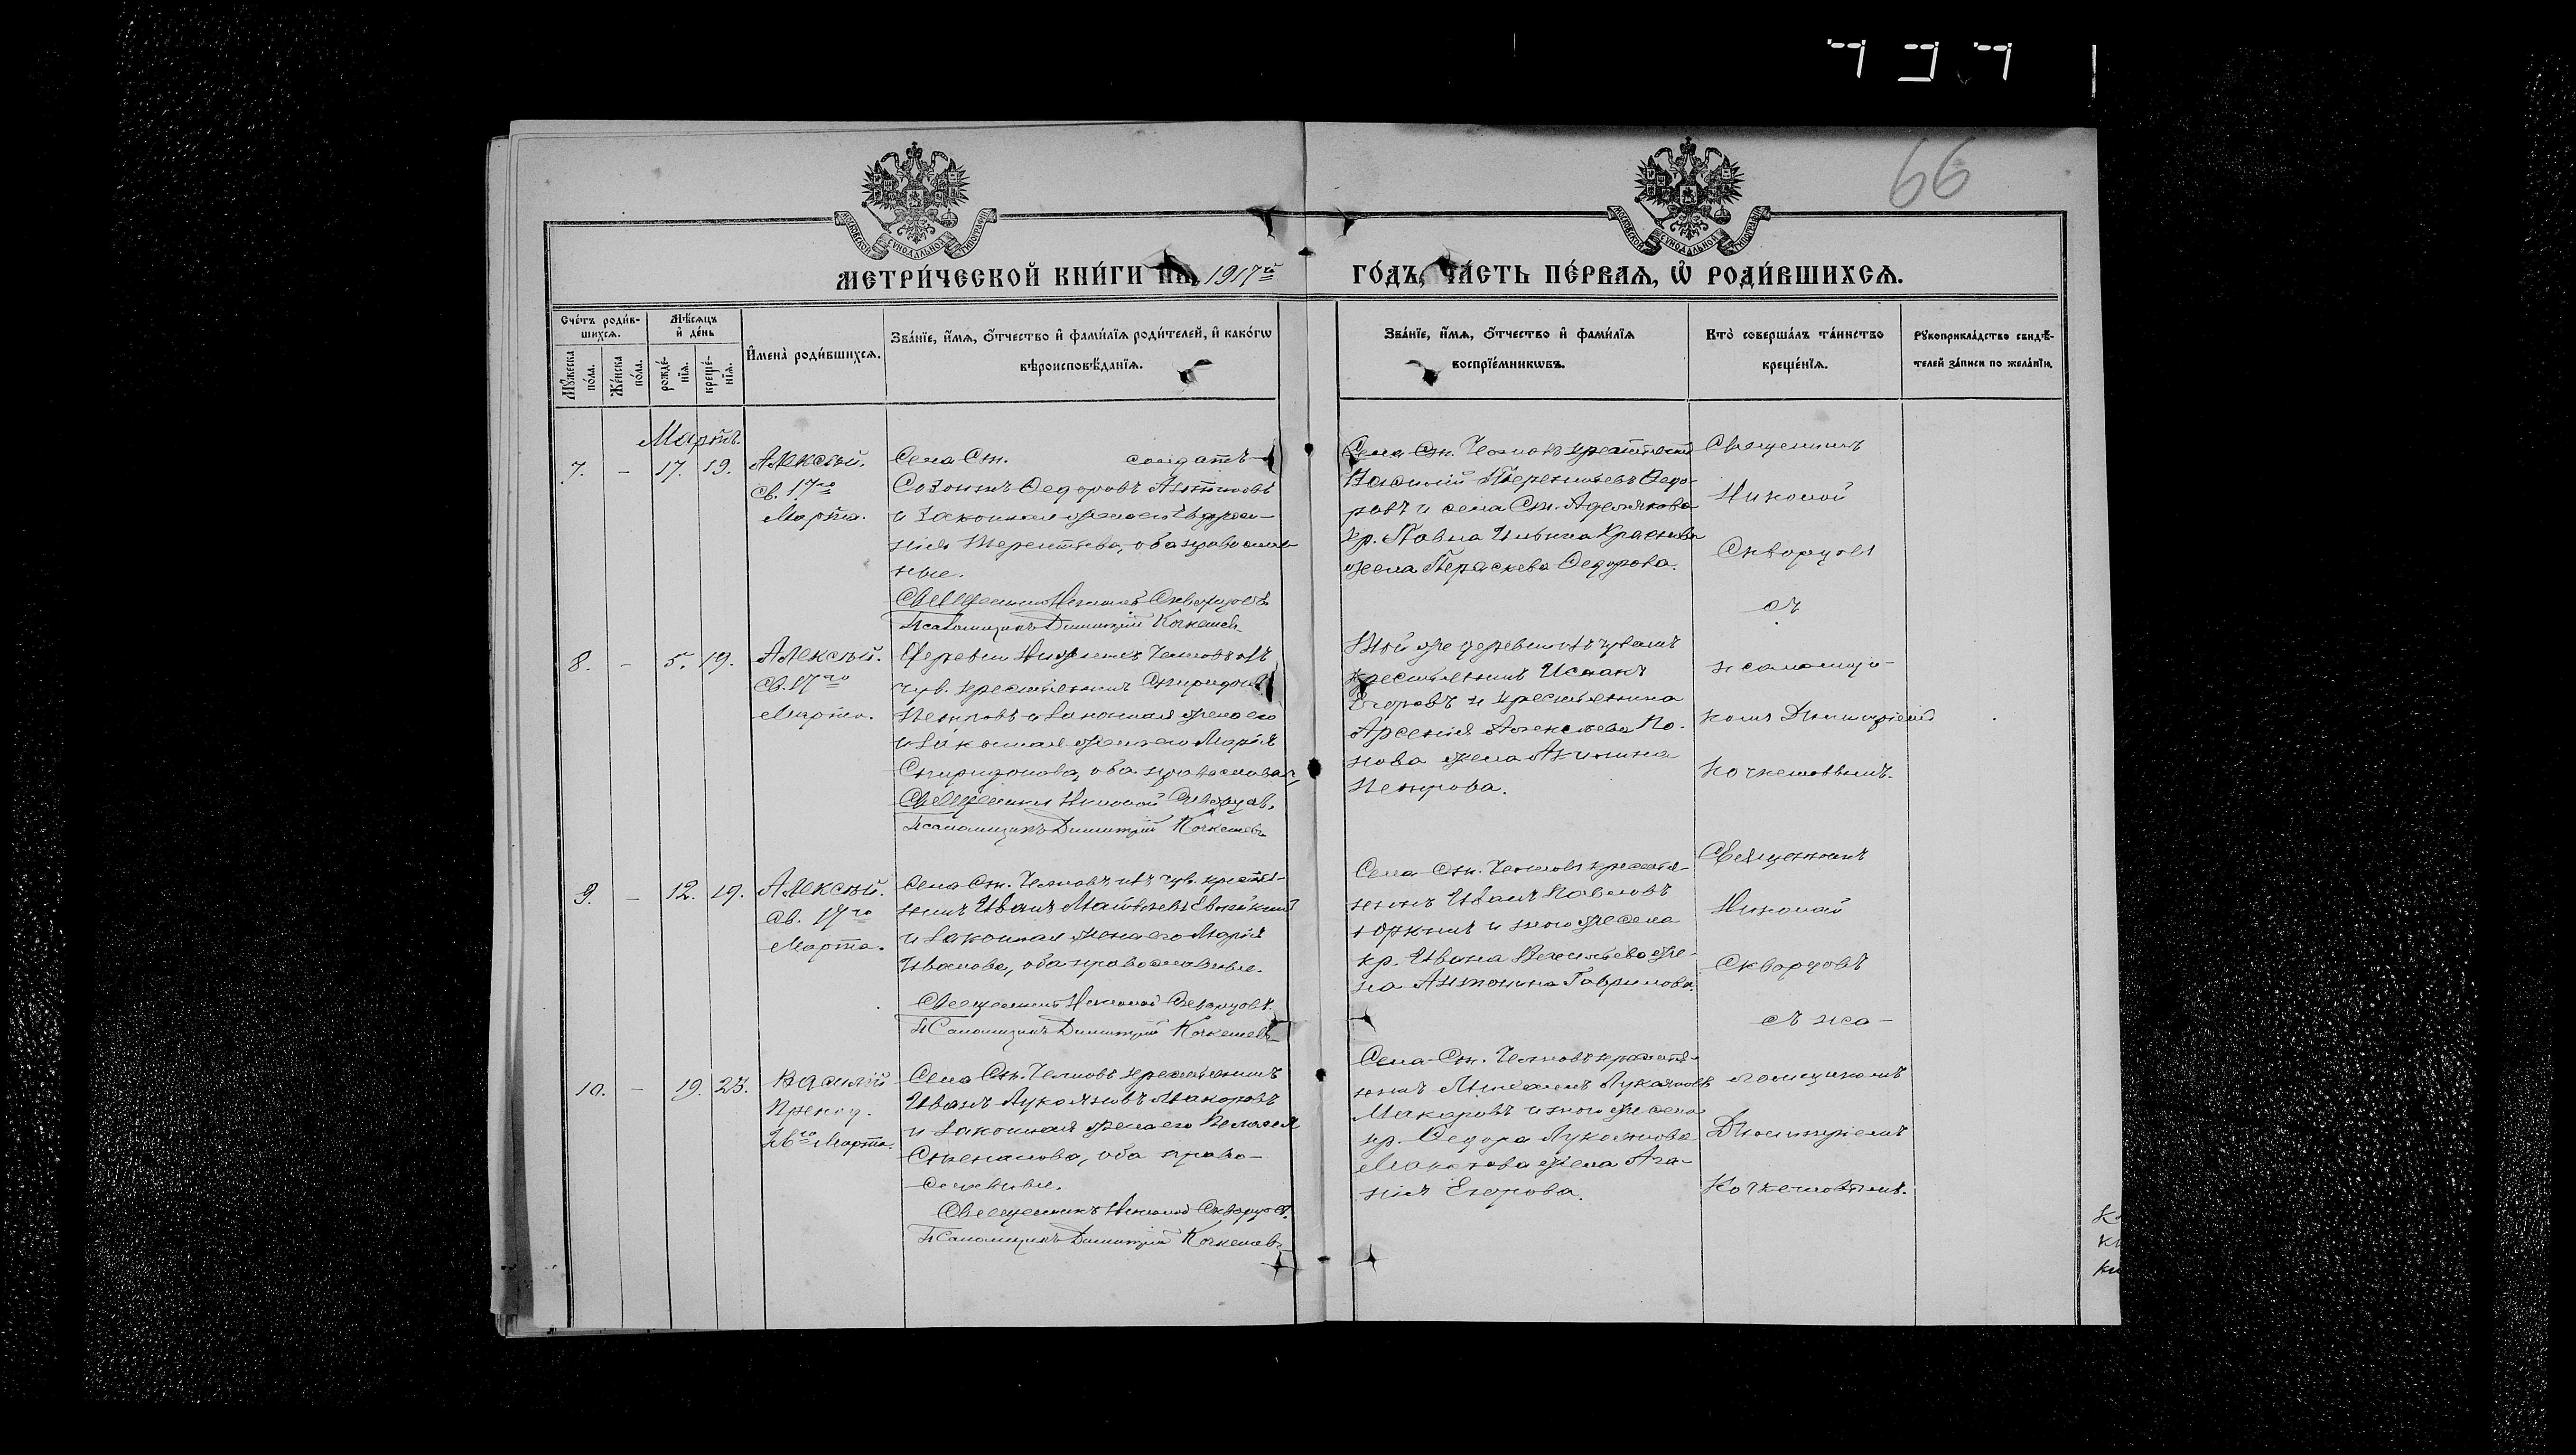 66
МОСКОВСКОЙ СУНОДАЛЬНОЙ ТИПОГРАФІИ
МОСКОВСКОЙ СУНОДАЛЬНОЙ ТИПОГРАФІИ
МЕТРИ́ЧЕСКОЙ КНИ́ГИ НА 1917й ГО́ДЪ, ЧА́СТЬ ПЕ́РВАЯ, Ѡ РОДИ́ВШИХСЯ.
Сче́тъ роди́в-
шихся.
Мѣ́сяцъ
и де́нь
Мꙋ́жеска
по́ла.
Же́нска
по́ла.
рожде́-
нія.
креще́-
нія.
Имена̀ роди́вшихся.
Зва́ніе, и́мя, о́тчество и фами́лія роди́телей, и како́гѡ
вѣроисповѣ́данія.
Зва́ніе, и́мя, о́тчество и фами́лія
воспріе́мникѡвъ.
Кто̀ соверша́лъ та́инство
креще́нія.
Рꙋкоприкла́дство свидѣ́-
телей за́писи по жела́нію.
Мартъ.
7. - 17. 19. Алексѣй.
св. 17го
Марта.
Села Ст. солдатъ
Созонтъ Ѳедоровъ Антиповъ
и законная жена его Евдокія
Терентьева, оба православ-
ные.
Священникъ Николай Скворцовъ
Псаломщикъ Димитрій Кочкешевъ
Села Ст. Челновъ
Василій Терентьевъ Ѳедо-
ровъ и села Ст.
кр. Павла Ильина
жена Параскева Ѳедорова.
Священникъ
Николай
Скворцовъ
съ
псаломщи-
комъ Димитріемъ
8. - 5. 19. Алексѣй.
св. 17го
Марта.
Деревни
чув. крестьянинъ Спиридонъ
Петровъ и законная жена его
и законная жена его Марія
Спиридонова, оба православн.
Священникъ Николай Скворцовъ.
Псаломщикъ Димитрій Кочкешевъ
Той же деревни изъ чувашъ
крестьянинъ
Егоровъ и крестьянина
Арсенія Алексѣева По-
пова жена Акилина
Петрова.
9. - 12. 19. Алексѣй.
св. 17го
Марта.
Села Ст. Челновъ изъ чув. кресть-
янинъ Иванъ Матвѣевъ
и законная жена его Марія
Иванова, оба православные.
Священникъ Николай Скворцовъ.
Псаломщикъ Димитрій Кочкешевъ
Села Ст. Челновъ крестья-
нинъ Иванъ Павловъ
Юркинъ и того же села
кр. Ивана Васильева же-
на Антонина Гаврилова.
Священникъ
Николай
Скворцовъ
съ пса-
ломщикомъ
Димитріемъ
10. - 19. 23. Василій
Препод.
26го Марта.
Села Ст. Челновъ крестьянинъ
Иванъ Лукояновъ Макаровъ
и законная жена его
Степанова, оба право-
славные.
Священникъ Николай Скворцовъ.
Псаломщикъ Димитрій Кочкешевъ
Села Ст. Челновъ крестья-
нинъ Лукояновъ
Макаровъ и того же села
кр. Ѳедора Лукоянова
Макарова жена Ага-
пія Егорова.